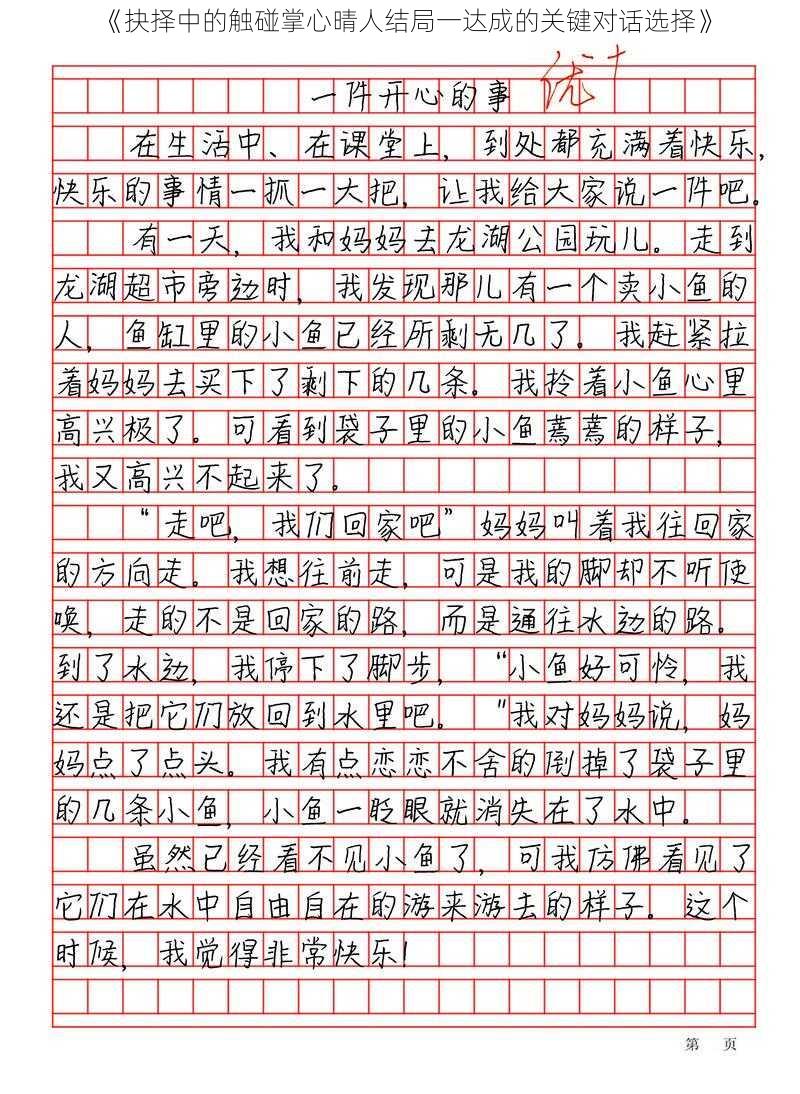 《抉择中的触碰掌心晴人结局一达成的关键对话选择》
一件开心的事
优+
在生活中、在课堂上，到处都充满着快乐，
快乐的事情一抓一大把，让我给大家说一件吧。
有一天，我和妈妈去龙湖公园玩儿。走到
龙湖超市旁边时，我发现那儿有一个卖小鱼的
人，鱼缸里的小鱼已经所剩无几了。我赶紧拉
着妈妈去买下了剩下的几条。我拎着小鱼心里
高兴极了。可看到袋子里的小鱼蔫蔫的样子，
我又高兴不起来了。
“走吧，我们回家吧”妈妈叫着我往回家
的方向走。我想往前走，可是我的脚却不听使
唤，走的不是回家的路，而是通往水边的路。
到了水边，我停下了脚步，“小鱼好可怜，我
还是把它们放回到水里吧。”我对妈妈说，妈
妈点了点头。我有点恋恋不舍的倒掉了袋子里
的几条小鱼，小鱼一眨眼就消失在了水中。
虽然已经看不见小鱼了，可我仿佛看见了
它们在水中自由自在的游来游去的样子。这个
时候，我觉得非常快乐！
第 页